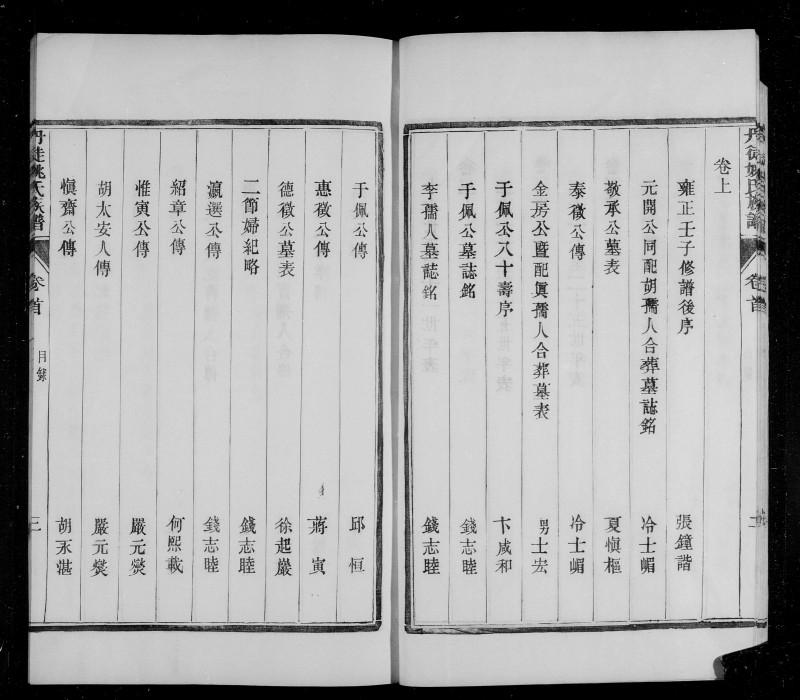 丹徒姚氏族譜 卷首 二
卷上
雍正壬子修譜後序 張鐘諧
元開公同配胡孺人合葬墓誌銘 冷士嵋
敬承公墓表 夏慎樞
泰徵公傳 冷士嵋
金房公暨配眞孺人合葬墓表 男士宏
于佩公八十壽序 卞咸和
于佩公墓誌銘 錢志睦
李孺人墓誌銘 錢志睦
于佩公傳 邱恒
惠徵公傳 蔣寅
德徵公墓表 徐起巖
二節婦紀略 錢志睦
瀛選公傳 錢志睦
紹章公傳 何熙載
惟寅公傳 嚴元燮
胡太安人傳 嚴元燮
慎齋公傳 胡永湛
丹徒姚氏族譜 卷首 目錄 三